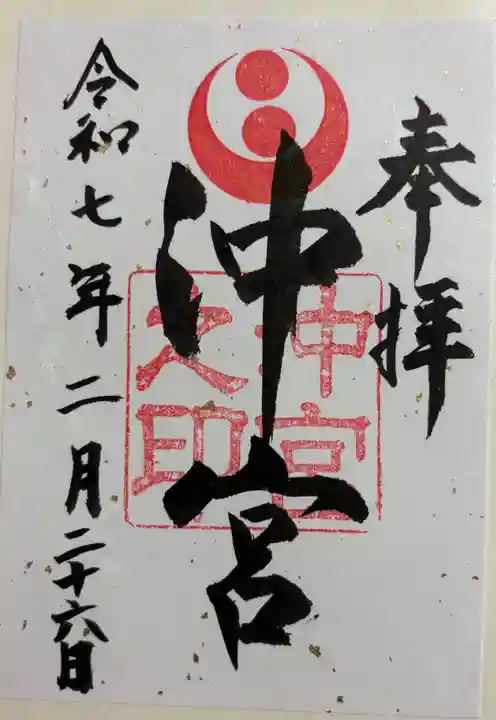 奉拝
沖宮
沖宮
之印
令和七年二月二十六日